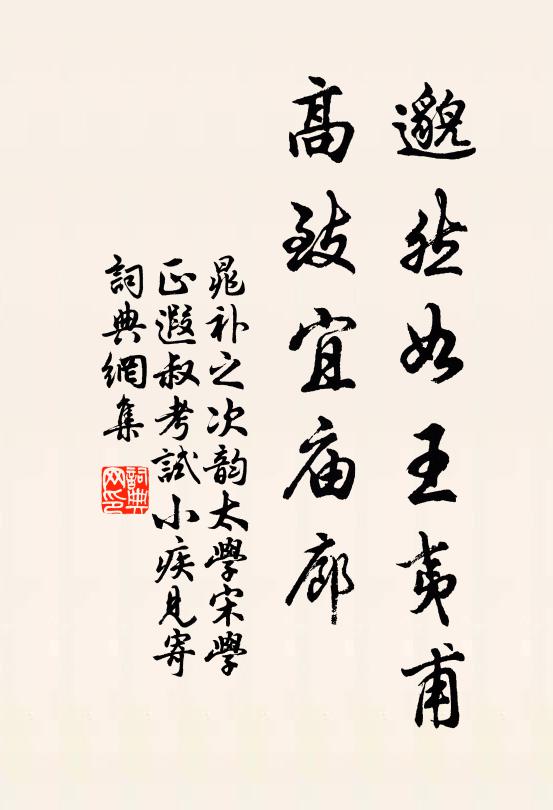 邈然如王夷甫
高致宜庙廊
晁补之次韵太學宋學
正遐叔考試小疾見寄
詞典網集
詞典
网印